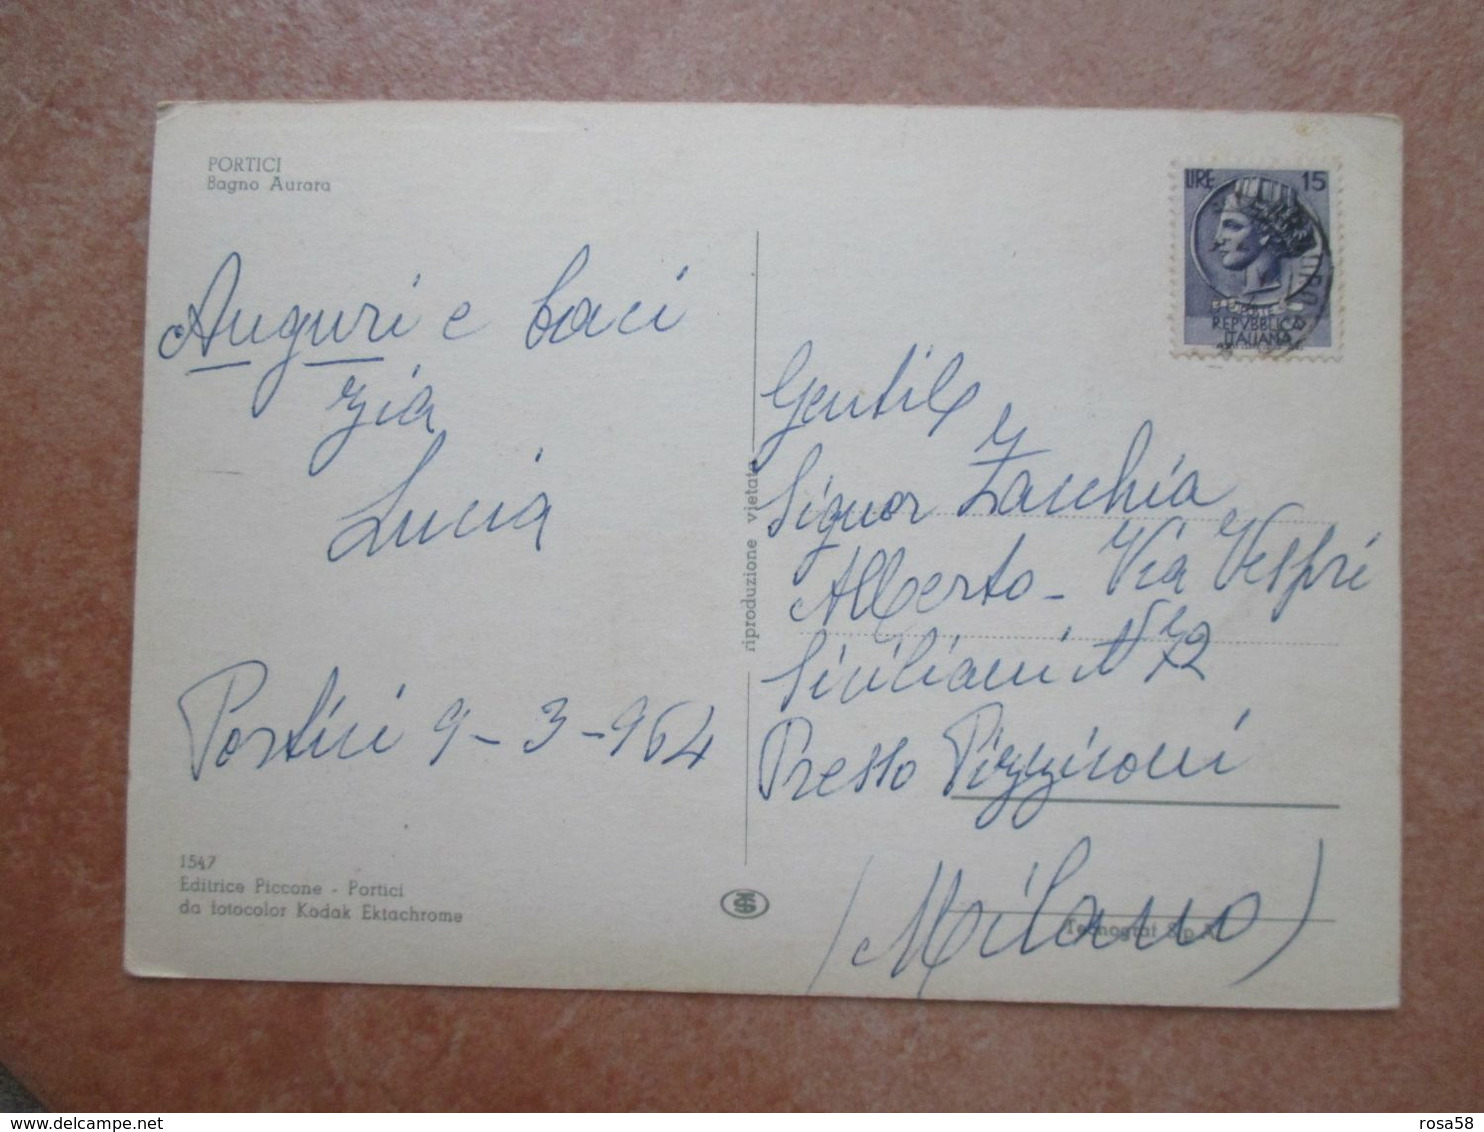 PORTICI
Bagno Aurora
Auguri e baci
Zia
Lucia
Portici 9-3-964
1547
Editrice Piccone - Portici
da fotocolor Kodak Ektachrome
riproduzione vietata
LIRE 15
POSTE
REPVBBLICA
ITALIANA
Gentile
Signor Zacchia
Alberto - Via Vespri
Siciliani N° 72
Presso Pizzironi
(Milano)
Tecnograf S.p.A.
rosa58